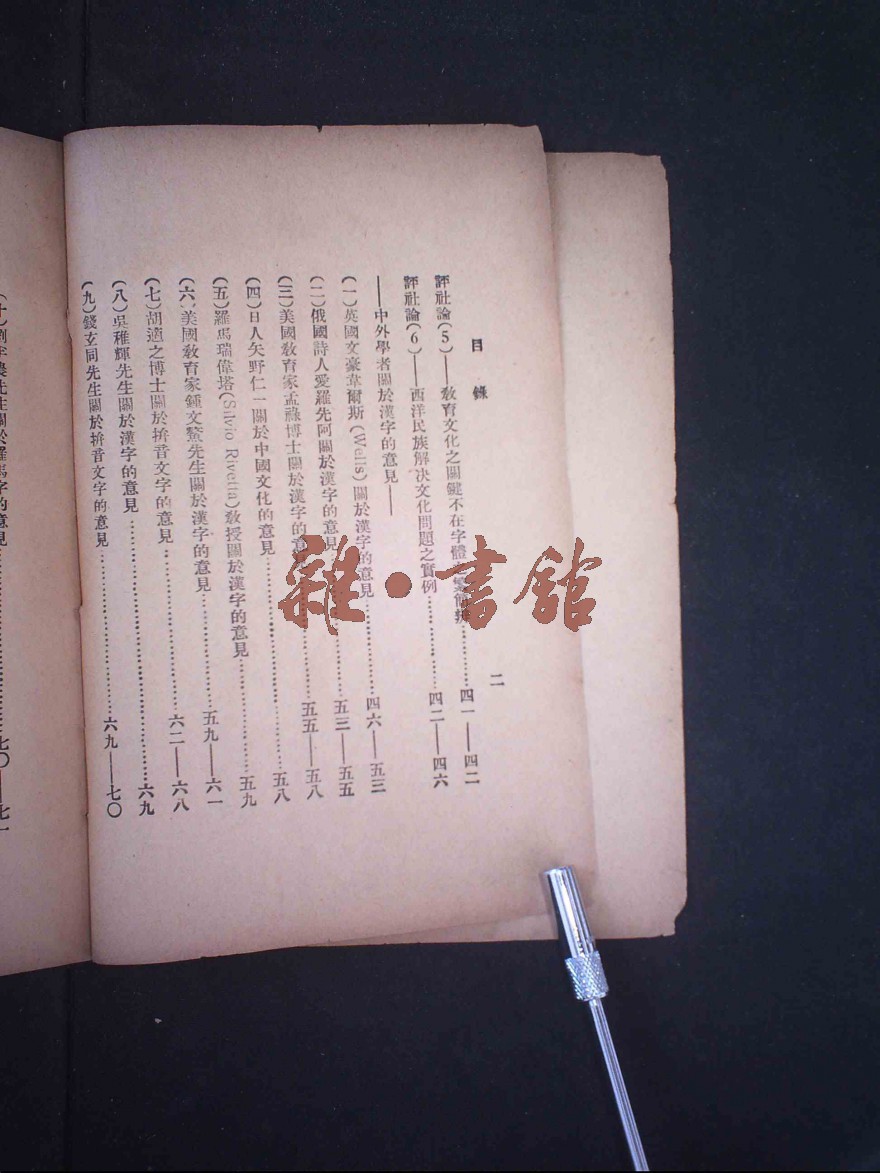 目錄
二
評社論(5)——教育文化之關鍵不在字體之繁簡辨……四一——四二
評社論(6)——西洋民族解決文化問題之實例……四二——四六
——中外學者關於漢字的意見——
(一)英國文豪韋爾斯(Wells)關於漢字的意見……四六——五三
(二)俄國詩人愛羅先阿關於漢字的意見……五三——五五
(三)美國教育家孟祿博士關於漢字的意見……五五——五八
(四)日人矢野仁一關於中國文化的意見……五八
(五)羅馬瑞偉塔(Silvio Rivetta)教授關於漢字的意見……五九
(六)美國教育家鍾文鰲先生關於漢字的意見……五九——六一
(七)胡適之博士關於拚音文字的意見……六二——六八
(八)吳稚輝先生關於漢字的意見……六九
(九)錢玄同先生關於拚音文字的意見……六九——七〇
(十)劉半農先生關於羅馬字的意見……七〇——七一
雜·書館